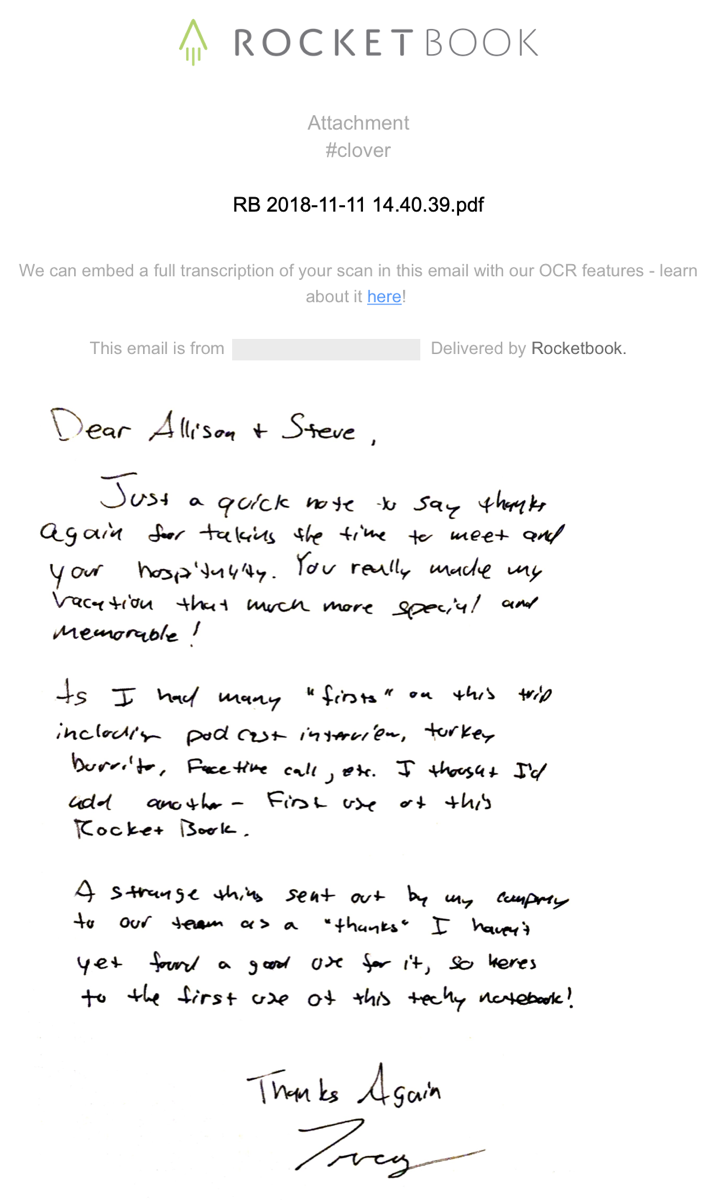 ROCKETBOOK
Attachment
#clover
RB 2018-11-11 14.40.39.pdf
We can embed a full transcription of your scan in this email with our OCR features - learn
about it here!
This email is from Delivered by Rocketbook.
Dear Allison + Steve,
Just a quick note to say thanks
again for taking the time to meet and
your hospitality. You really made my
vacation that much more special and
memorable!
As I had many "firsts" on this trip
including podcast interview, turkey
burrito, Facetime call, etc. I thought I'd
add another - First use of this
Rocket Book.
A strange thing sent out by my company
to our team as a "thanks" I haven't
yet found a good use for it, so heres
to the first use of this techy notebook!
Thanks Again
Tracy